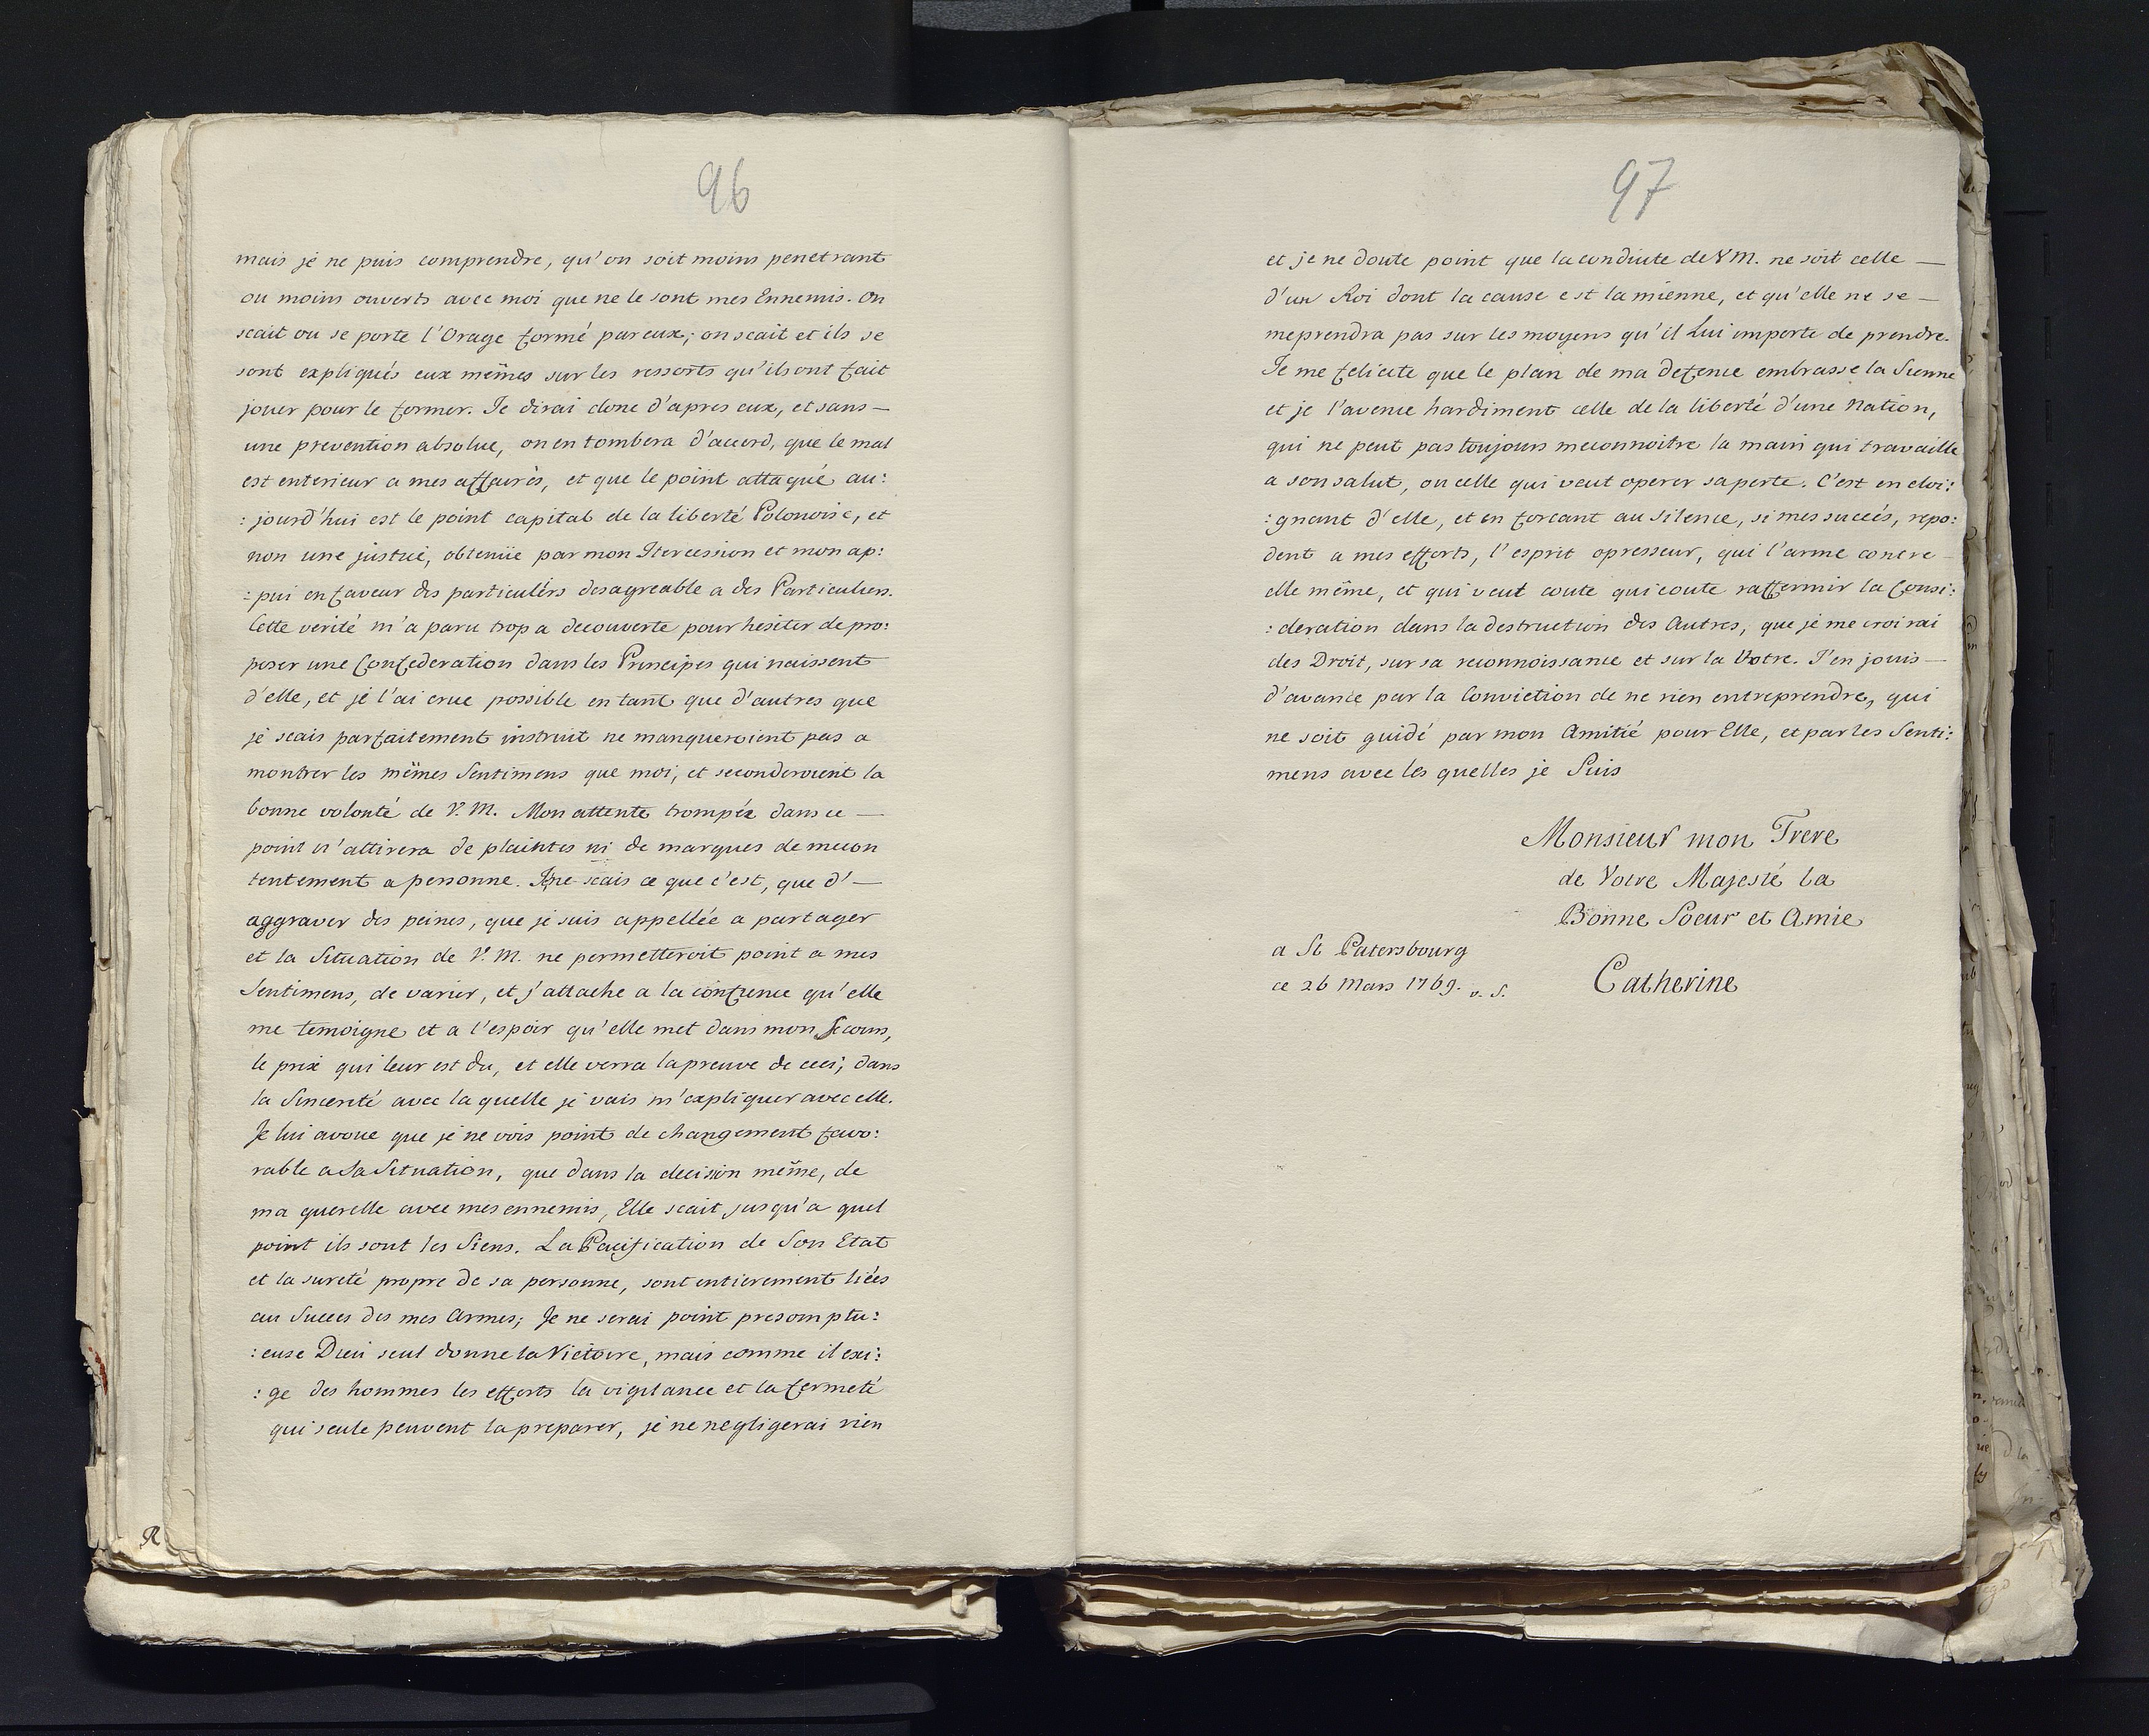 96
mais je ne puis comprendre, qu'on soit moins penetrant
ou moins ouverts avec moi que ne le sont mes Ennemis. On
scait ou se porte l'Orage formé par eux; on scait et ils se
sont expliqués eux mêmes sur les ressorts qu'ils ont fait
jouer pour le former. Je dirai donc d'apres eux, et sans —
une prevention absolue, on en tombera d'accord, que le mal
est enterieur a mes affaires, et que le point attaqué au:
:jourd'hui est le point capital de la liberté Polonoise, et
non une justice, obtenüe par mon Itercession et mon ap:
:pui en faveur des particuliers desagreable a des Particuliers.
Cette verité m'a paru trop a decouverte pour hesiter de pro:
poser une Confederation dans les Principes qui naissent
d'elle, et je l'ai crue possible en tant que d'autres que
je scais parfaitement instruit ne manqueroient pas a
montrer les mêmes Sentimens que moi, et seconderoient la
bonne volonté de V. M. Mon attente trompée dans ce —
point n'attirera de plaintes ni de marques de mecon
tentement a personne. Je ne scais ce que c'est, que d'—
aggraver des peines, que je suis appellée a partager
et la Situation de V. M. ne permetteroit point a mes
Sentimens, de varier, et j'attache a la confience qu'elle
me temoigne et a l'espoir qu'elle met dans mon Secours,
le prix qui leur est du, et elle verra la preuve de ceci; dans
la Sincerité avec la quelle je vais m'expliquer avec elle.
Je lui avoue que je ne vois point de changement favo:
rable a Sa Situation, que dans la decision même, de
ma querelle avec mes ennemis, Elle scait jusqu'a quel
point ils sont les Siens. La Pacification de Son Etat
et la sureté propre de sa personne, sont entierement liées
au Succes des mes Armes; Je ne serai point presomptu:
:euse Dieu seul donne la Victoire, mais comme il exi:
:ge des hommes les efforts la vigilance et la fermeté
qui seule peuvent la preparer, je ne negligerai rien
97
et je ne doute point que la conduite de V M. ne soit celle —
d'un Roi dont la cause est la mienne, et qu'elle ne se —
meprendra pas sur les moyens qu'il Lui importe de prendre.
Je me felicite que le plan de ma defence embrasse la Sienne
et je l'avence hardiment celle de la liberté d'une Nation,
qui ne peut pas toujours meconnoitre la main qui travaille
a son salut, ou celle qui veut operer sa perte. C'est en eloi:
:gnant d'elle, et en forcant au Silence, si mes succés, repo:
dent a mes efforts, l'esprit opresseur, qui l'arme contre —
elle même, et qui veut coute qui coute raffermir la Consi:
:deration dans la destruction des Autres, que je me croirai
des Droit, sur sa reconnoissance et sur la Votre. J'en jouis —
d'avance par la Conviction de ne rien entreprendre, qui
ne soit guidé par mon Amitié pour Elle, et par les Senti:
mens avec les quelles je Suis
Monsieur mon Frere
de Votre Majesté la
Bonne Soeur et Amie
a St Patersbourg
ce 26 Mars 1769. v. S.
Catherine
R